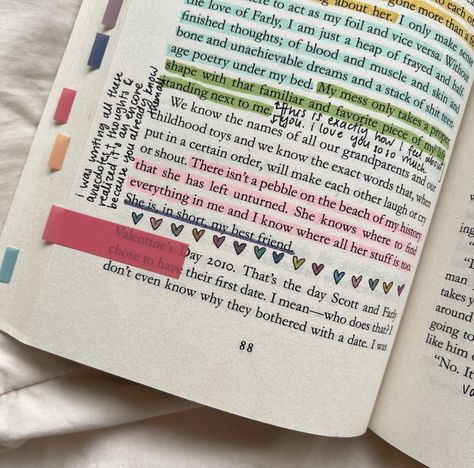 there to act as my foil and vice versa. Without
the love of Farly, I am just a heap of frayed and half-
finished thoughts; of blood and muscle and skin and
bone and unachievable dreams and a stack of shit teen-
age poetry under my bed. My mess only takes a proper
shape with that familiar and favorite piece of my life
standing next to me.
this is exactly how i feel about
you. i love you so so much
We know the names of all our grandparents and our
childhood toys and we know the exact words that, when
put in a certain order, will make each other laugh or cry
or shout. There isn't a pebble on the beach of my history
that she has left unturned. She knows where to find
everything in me and I know where all her stuff is too.
She is, in short, my best friend.
Valentine's Day 2010. That's the day Scott and Farly
chose to have their first date. I mean—who does that? I
don't even know why they bothered with a date. I was
88
i was writing all these
anecdotes, thoughts &
realized it's an
because you already know
them
man
takes
around
going to
like him
"No. It